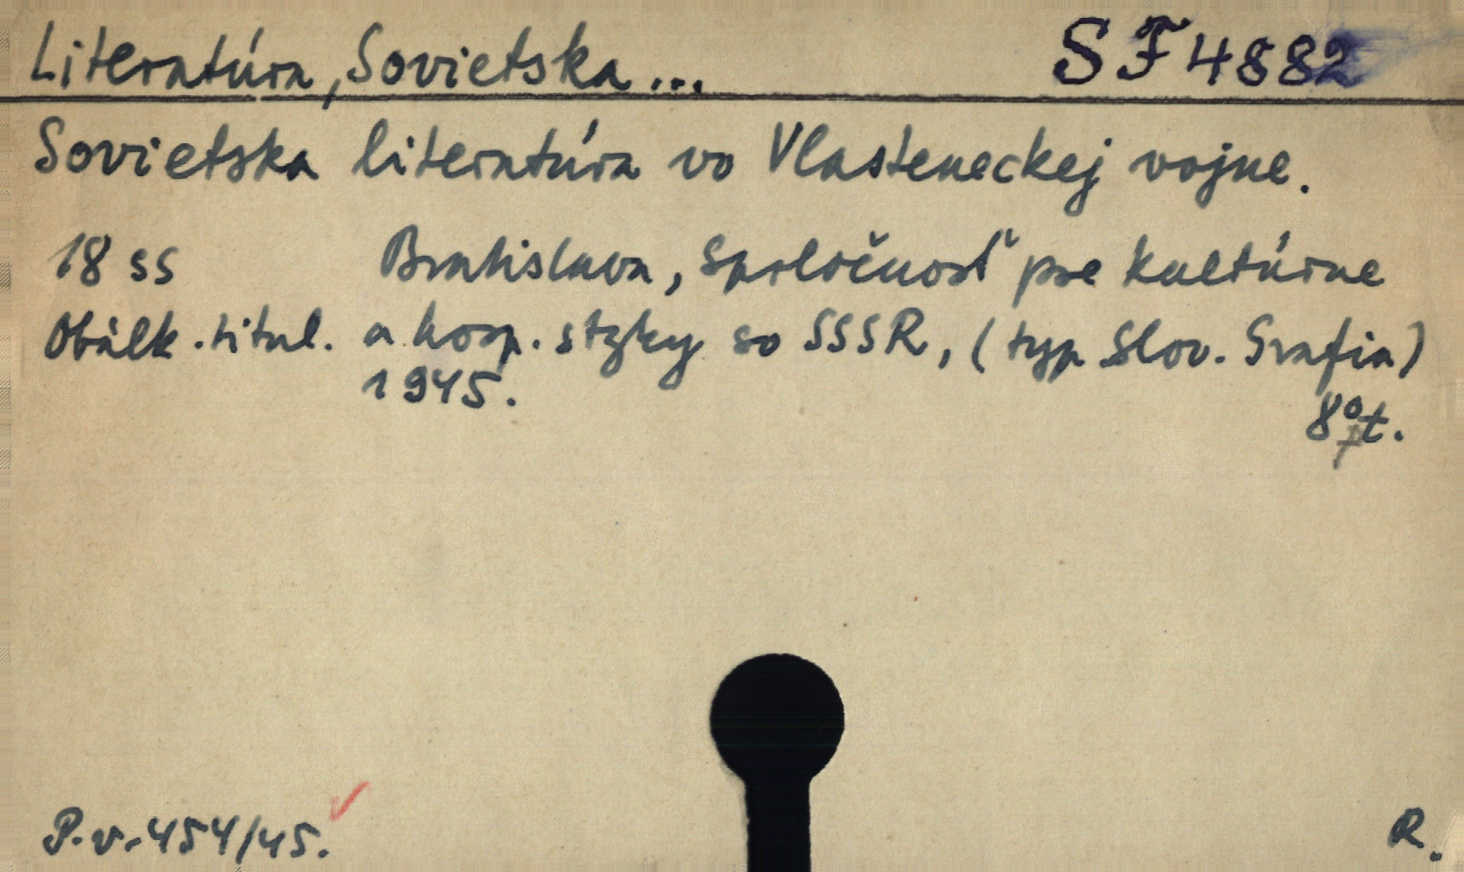 Literatúra, Sovietska... SF 4882
Sovietska literatúra vo Vlasteneckej vojne.
18 ss Bratislava, Spoločnosť pre kultúrne
Obálk. titul. a hosp. styky so SSSR, (typ Slov. Grafia)
1945.
8° t.
P.v. 454/45.
R.